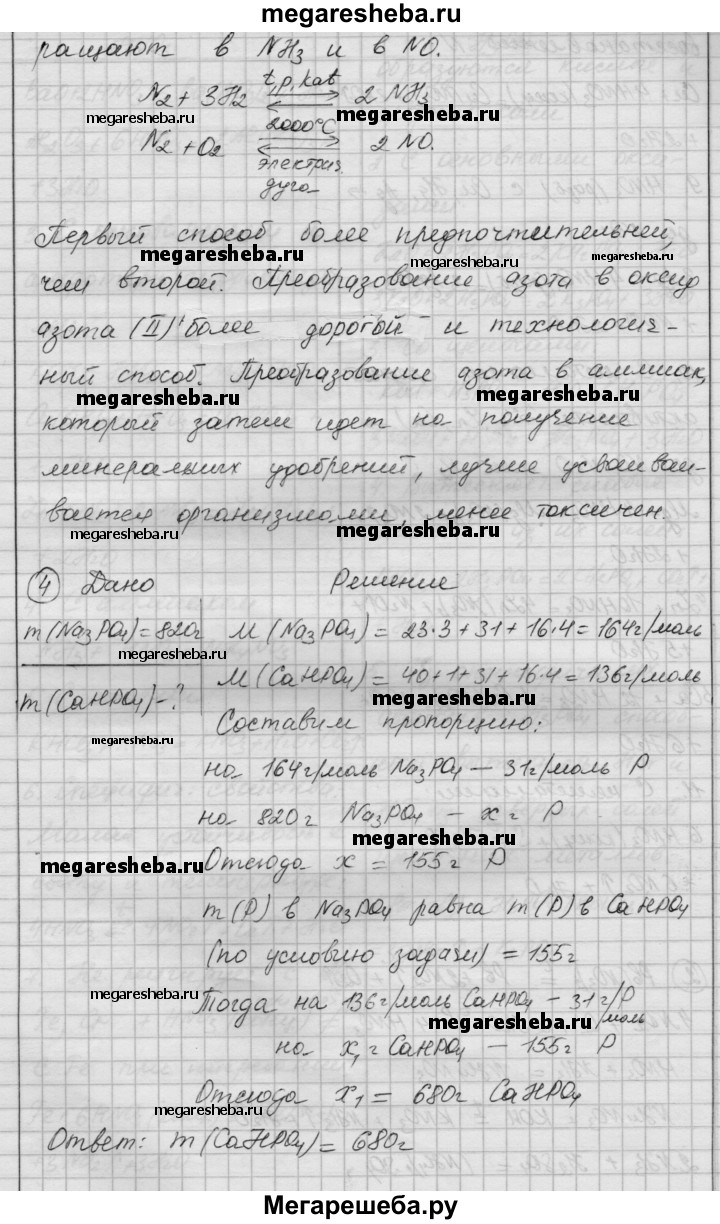 megaresheba.ru
ращают в NH3 и в NO.
N2 + 3H2 t,p,kat 2 NH3
megaresheba.ru megaresheba.ru
N2 + O2 2000°C 2 NO.
электрич.
дуга
Первый способ более предпочтительней,
megaresheba.ru megaresheba.ru megaresheba.ru
чем второй. Преобразование азота в оксид
азота (II) более дорогой и технологич-
ный способ. Преобразование азота в аммиак,
megaresheba.ru megaresheba.ru
который затем идет на получение
минеральных удобрений, лучше усваиваи-
вается организмами, менее токсичен.
megaresheba.ru megaresheba.ru
4 Дано Решение
m(Na3PO4)=820г M(Na3PO4) = 23·3+31+16·4=164г/моль
megaresheba.ru
m(CaHPO4)-? M(CaHPO4)=40+1+31+16·4=136г/моль
megaresheba.ru
Составим пропорцию:
megaresheba.ru
на 164г/моль Na3PO4 — 31г/моль P
на 820г Na3PO4 — x г P
megaresheba.ru
megaresheba.ru
Отсюда x = 155г P
m(P) в Na3PO4 равна m(P) в CaHPO4
(по условию задачи) = 155г
megaresheba.ru
Тогда на 136г/моль CaHPO4 — 31г/P
/моль
megaresheba.ru
на x1 г CaHPO4 — 155г P
Отсюда x1 = 680г CaHPO4
megaresheba.ru
Ответ: m(CaHPO4) = 680г
Мегарешеба.ру